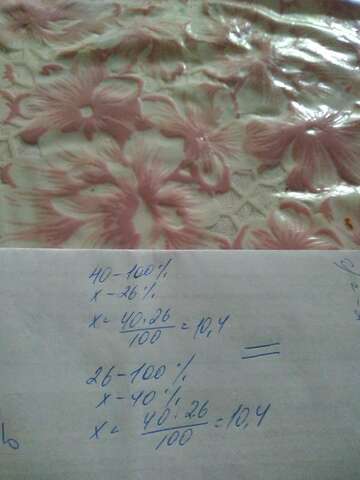 40 - 100%
x - 26%
x = 40·26/100 = 10,4
=
26 - 100%
x - 40%
x = 40·26/100 = 10,4